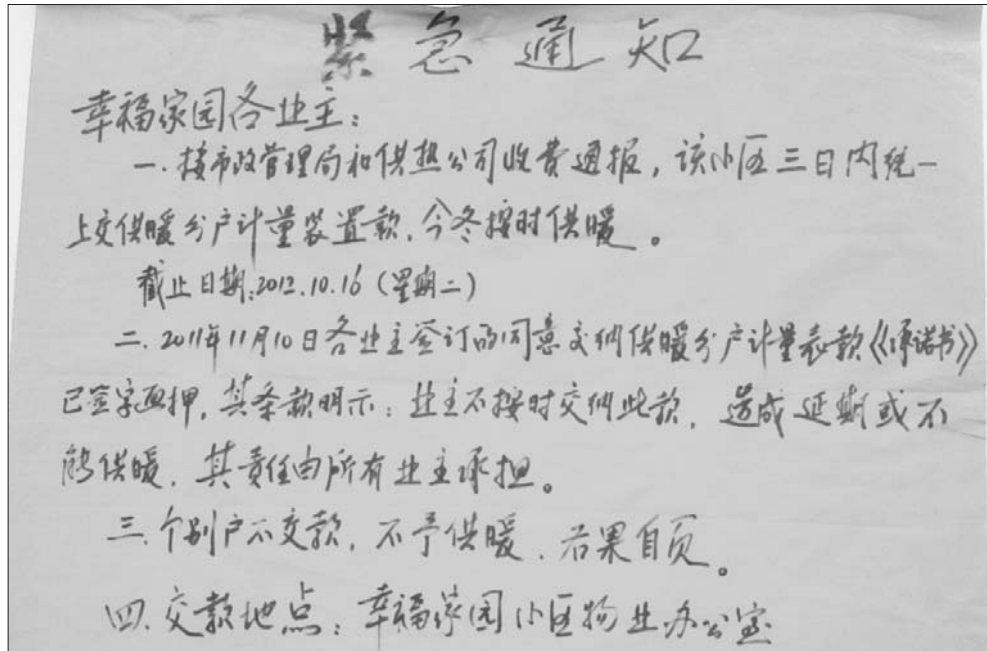 紧急通知
幸福家园各业主:
一.接市政管理局和供热公司收费通报,该小区三日内统一
上交供暖分户计量装置款.今冬按时供暖。
截止日期:2012.10.16(星期二)
二.2011年11月10日各业主签订的同意交纳供暖分户计量表款《承诺书》
已签字画押,其条款明示:业主不按时交纳此款,造成延期或不
能供暖.其责任由所有业主承担。
三.个别户不交款,不予供暖.后果自负。
四.交款地点:幸福家园小区物业办公室